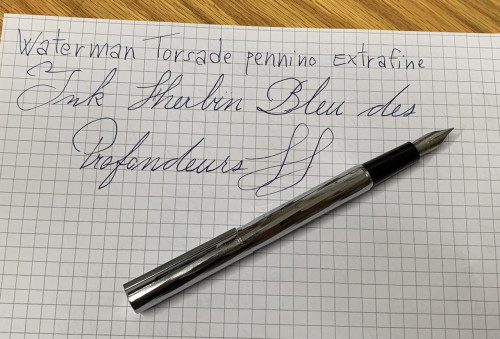 Waterman Torsade pennino Extrafine
Ink Herbin Bleu des
Profondeurs